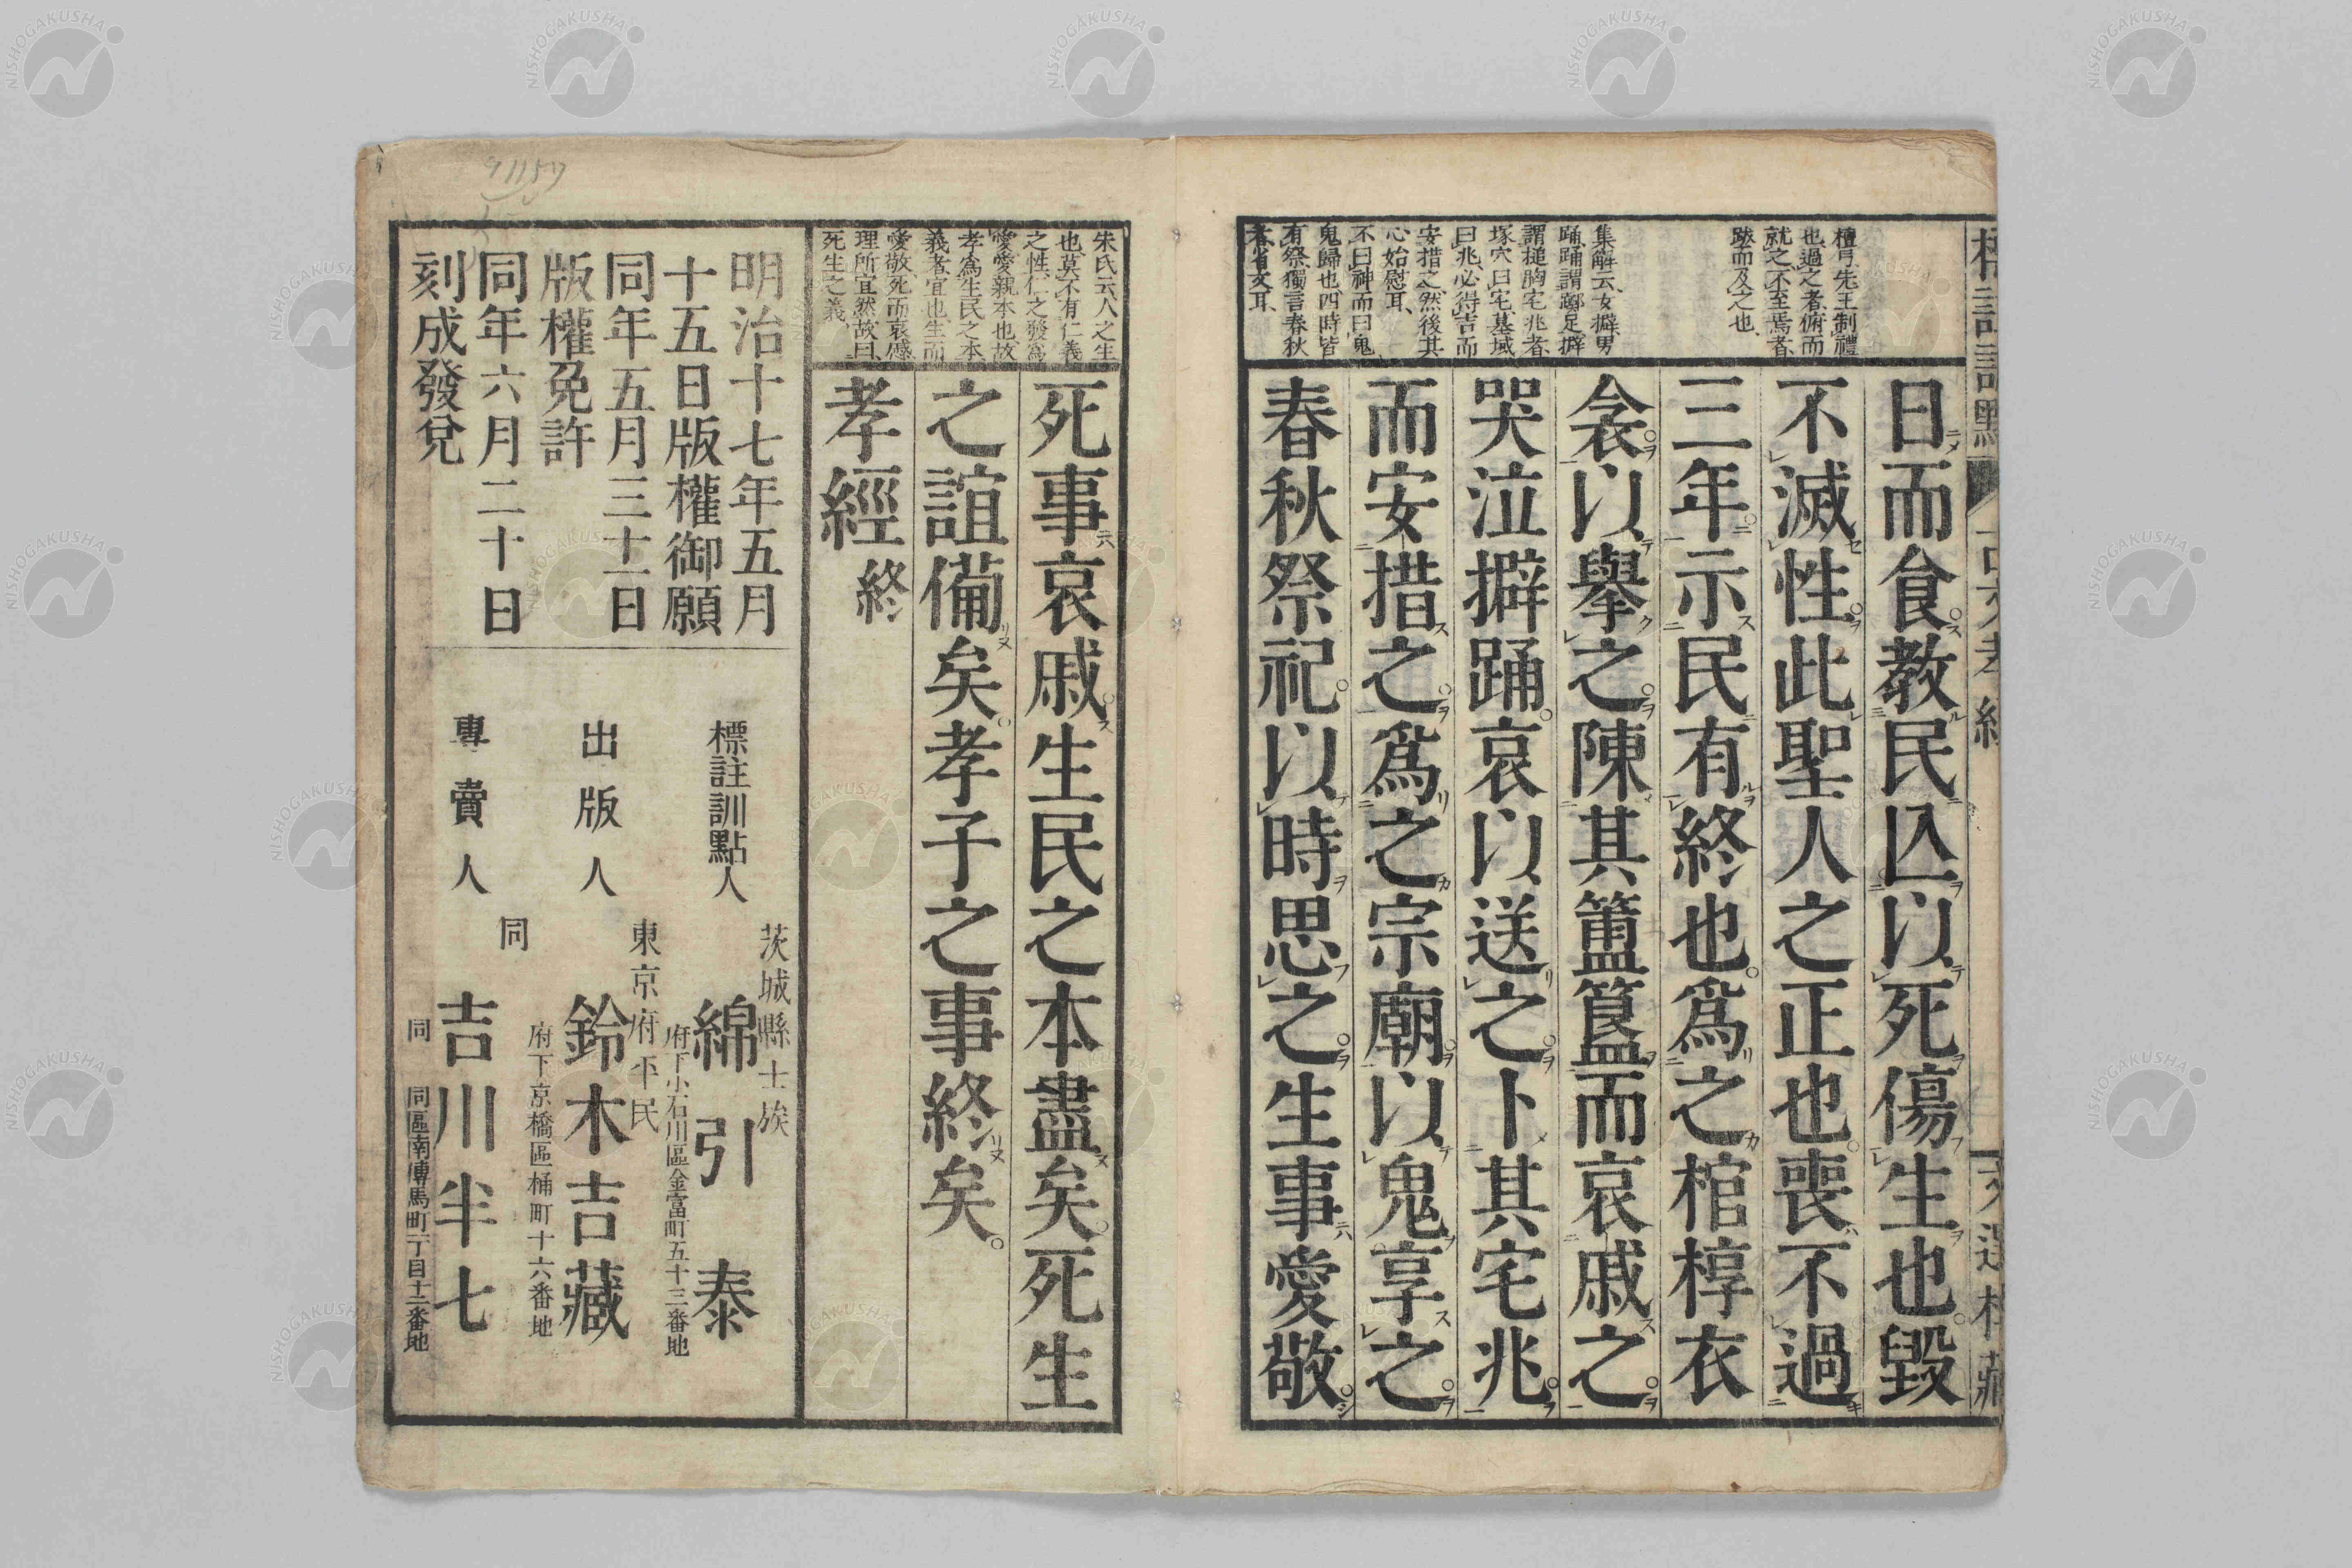 標註訓點
古文孝經
文選樓藏
檀弓、先王制禮
也、過之者、俯而
就之、不至焉者、
跂而及之也、
集解云、女擗男
踊、踊謂躑足、擗
謂搥胸、宅兆者、
塚穴曰宅、墓域
曰兆、必得吉而
安措之、然後其
心始慰耳、
不曰神而曰鬼
鬼歸也、四時皆
有祭、獨言春秋
者省文耳、
日而食。教民亾以死傷生也。毀
不滅性。此聖人之正也。喪不過
三年。示民有終也。爲之棺椁衣
衾。以擧之。陳其簠簋而哀戚之。
哭泣擗踊。哀以送之。卜其宅兆。
而安措之。爲之宗廟。以鬼享之。
春秋祭祀。以時思之。生事愛敬。
朱氏云、人之生
也、莫不有仁義
之性、仁之發爲
愛、愛親本也、故
孝爲生民之本
義者、宜也、生而
愛敬、死而哀慼
理所宜然、故曰、
死生之義、
死事哀戚。生民之本盡矣。死生
之誼備矣。孝子之事終矣。
孝經終
明治十七年五月
十五日版權御願
同年五月三十一日
版權免許
同年六月二十日
刻成發兌
標註訓點人
茨城縣士族
綿引泰
府下小石川區金富町五十三番地
出版人
東京府平民
鈴木吉藏
府下京橋區桶町十六番地
專賣人
同
吉川半七
同 同區南傳馬町一丁目十二番地
91157
NISHOGAKUSHA